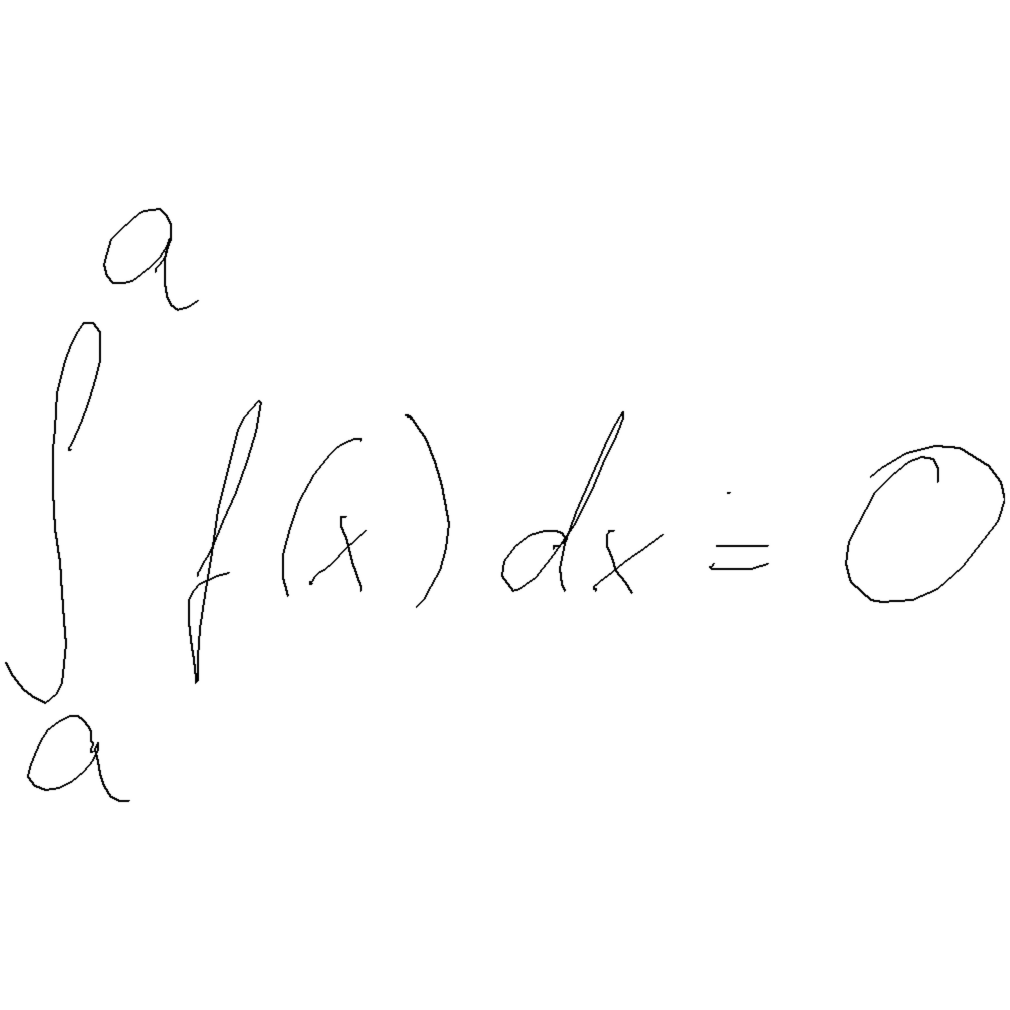 \int_{a}^{a} f(x) dx = 0